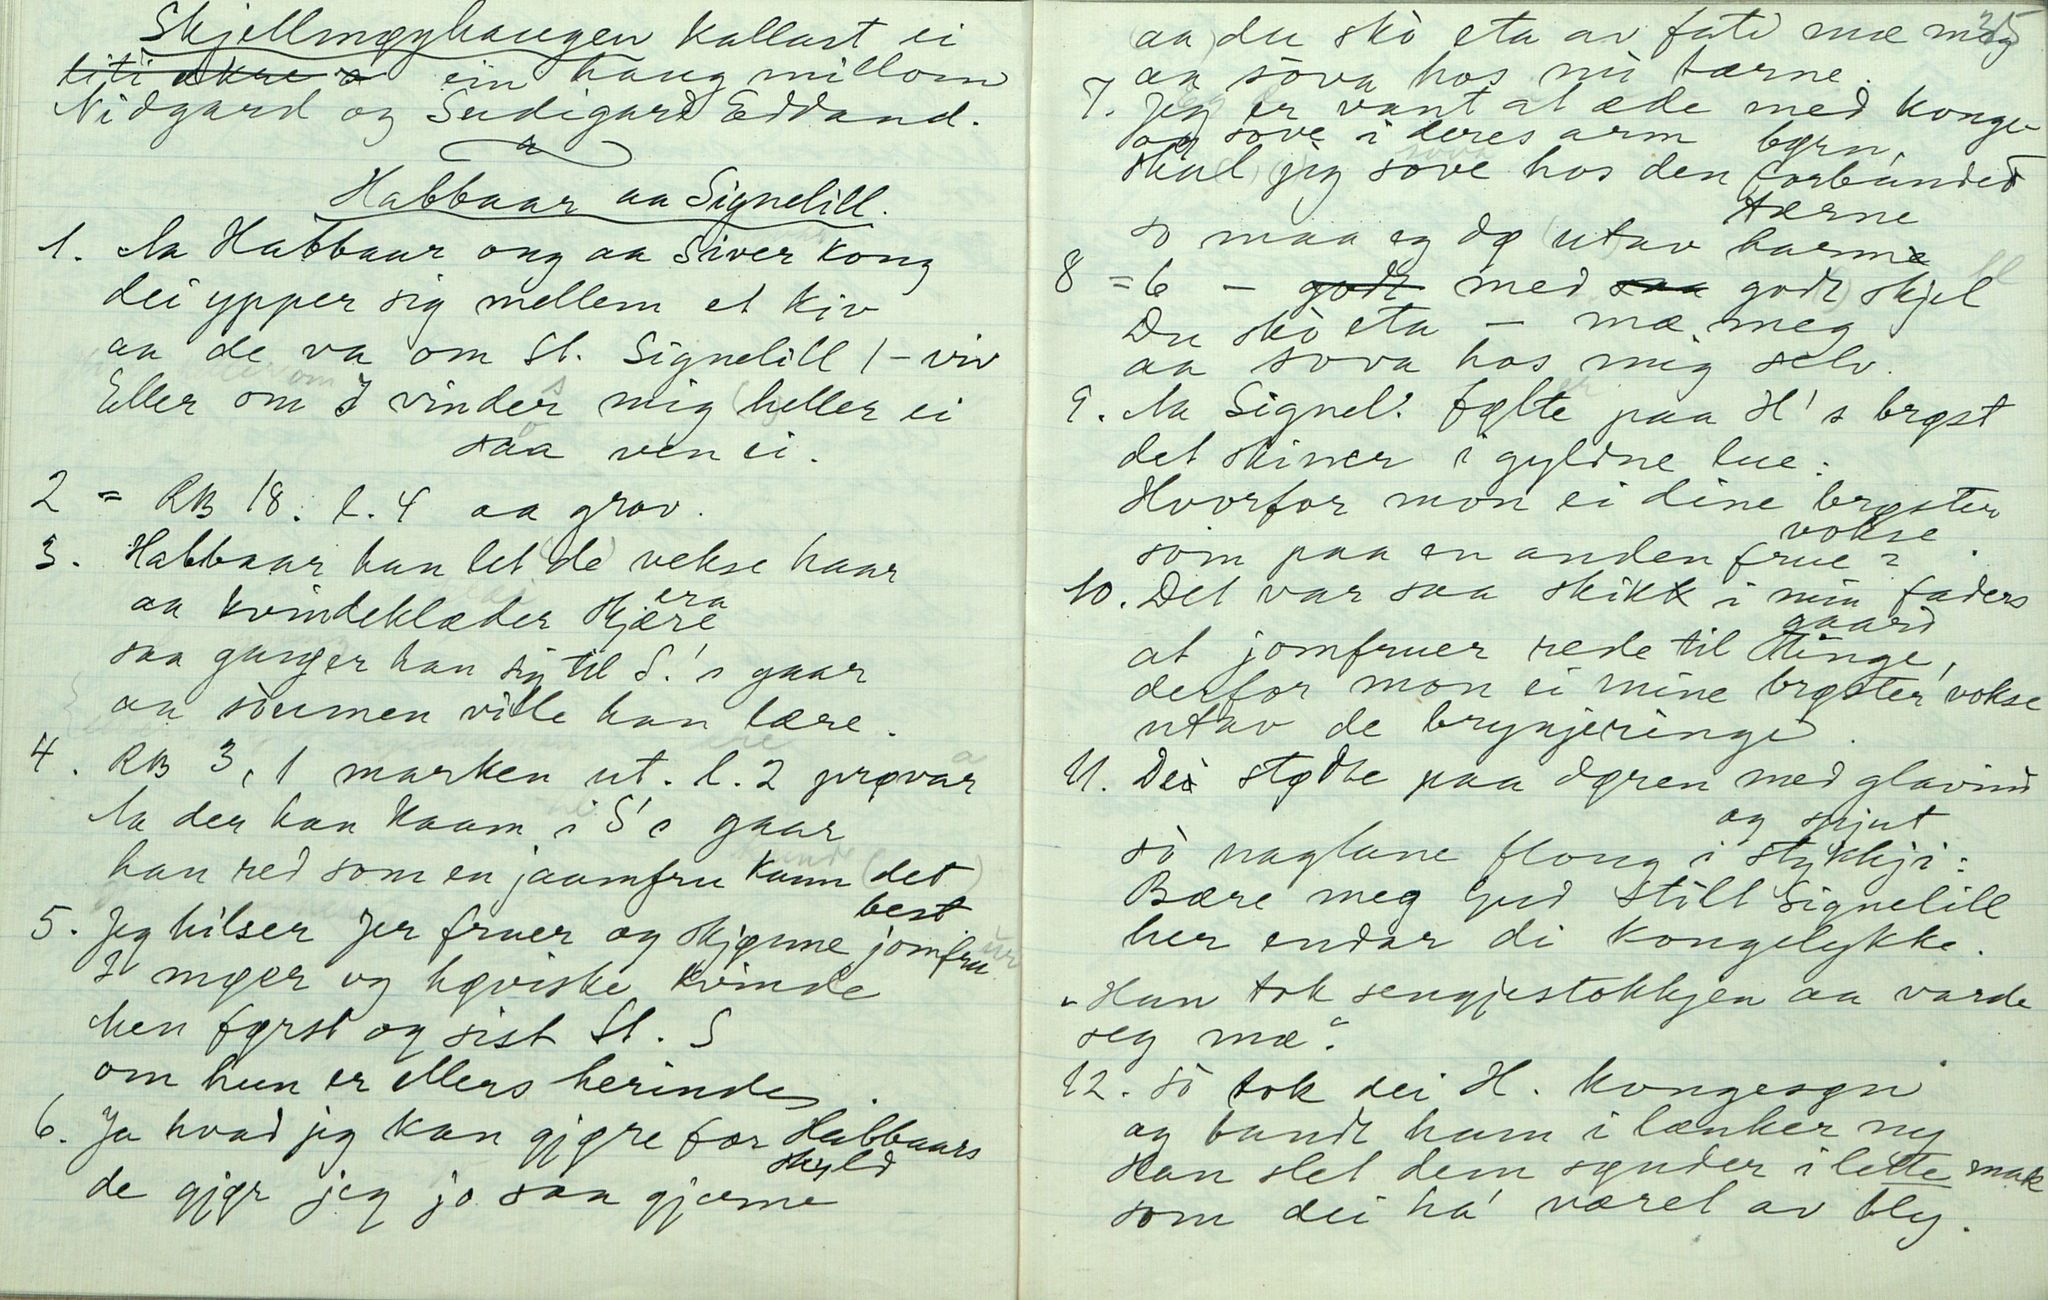 Skjellingøyhaugen kallast ei
liti akre s ein haug millom
Nidgard og Sudigard Eddand.
Habbaar aa Signelill.
1. Aa Habbaar ong aa Siver kong
dei ypper sig mellem et kiv
aa de va om St. Signelill / – viv
Eller om I vinder mig (heller ei
saa ven ei.
2 = RB 18. l. 4 aa grav.
3. Habbaar han let (de) vekse haar
aa kvindeklæder skjære
era
saa ganger han sig til S.'s gaar
aa søumen ville han lære.
4. RB 3,1 marken ut. l. 2 prøvar
Aa der han kaam i S's gaar
han red som en jaamfru kunn (det)
best
5. Jeg hilser Jer fruer og skjønne jomfru
I møer og høviske kvinde
Men først og sist St. S
om hun er ellers herinde.
6. Ja hvad jeg kan gjøre for Habbaars
skyld
de gjør jeg jo saa gjerne
35
(aa) du skò eta av fati mæ meg
aa sòva hos mi tærne.
7. Jeg er vant at æde med konge-
børn
og sove i deres arm
skal jeg sove hos den forbandet
tærne
so maa eg dø (ut)av harme
8 = 6 – godt med saa godt skjel
Du skò eta – mæ meg
aa sova hos mig selv.
9. Aa Signel: følte paa H's brøst
det skiner i gyldne lue:
Hvorfor mon ei dine brøster
vokse
som paa en anden frue?
10. Det var saa skikk i min faders
gaard
at jomfruer rede til tinge,
derfor mon ei mine brøster vokse
utav de brynjeringe.
11. Dei stødte paa døren med glavind
og spjut
sò naglane flong i stykkji:
Bære meg Gud still Signelill
her endar di kongelykke.
"Han tok sengjestokkjen aa varde
seg mæ".
12. Sò tok dei H. kongesøn
og bandt ham i lænker ny
Han slet dem sønder i lette mak
som dei ha' været av bly.